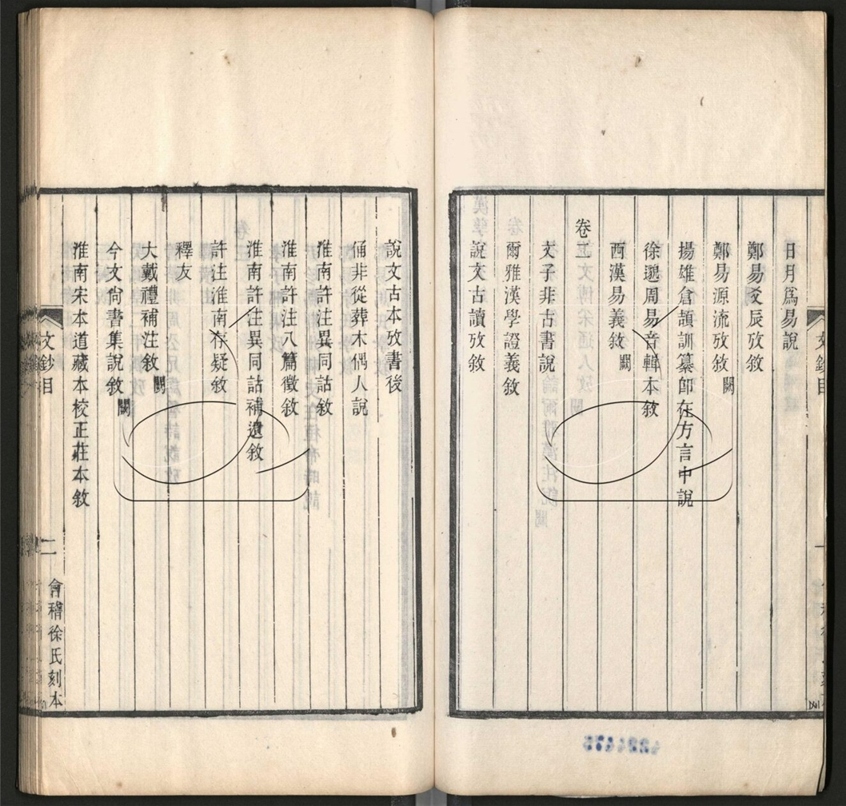 日月爲易說
鄭易爻辰攷敘
鄭易源流攷敘 闕
揚雄倉頡訓纂卽在方言中說
徐邈周易音輯本敘
西漢易義敘 闕
卷二
文子非古書說
爾雅漢學證義敘
說文古讀攷敘
說文古本攷書後
俑非從葬木偶人說
淮南許注異同詁敘
淮南許注八篇徵敘
淮南許注異同詁補遺敘
許注淮南存疑敘
釋友
大戴禮補注敘 闕
今文尙書集說敘 闕
淮南宋本道藏本校正莊本敘
文鈔目
二
會稽徐氏刻本